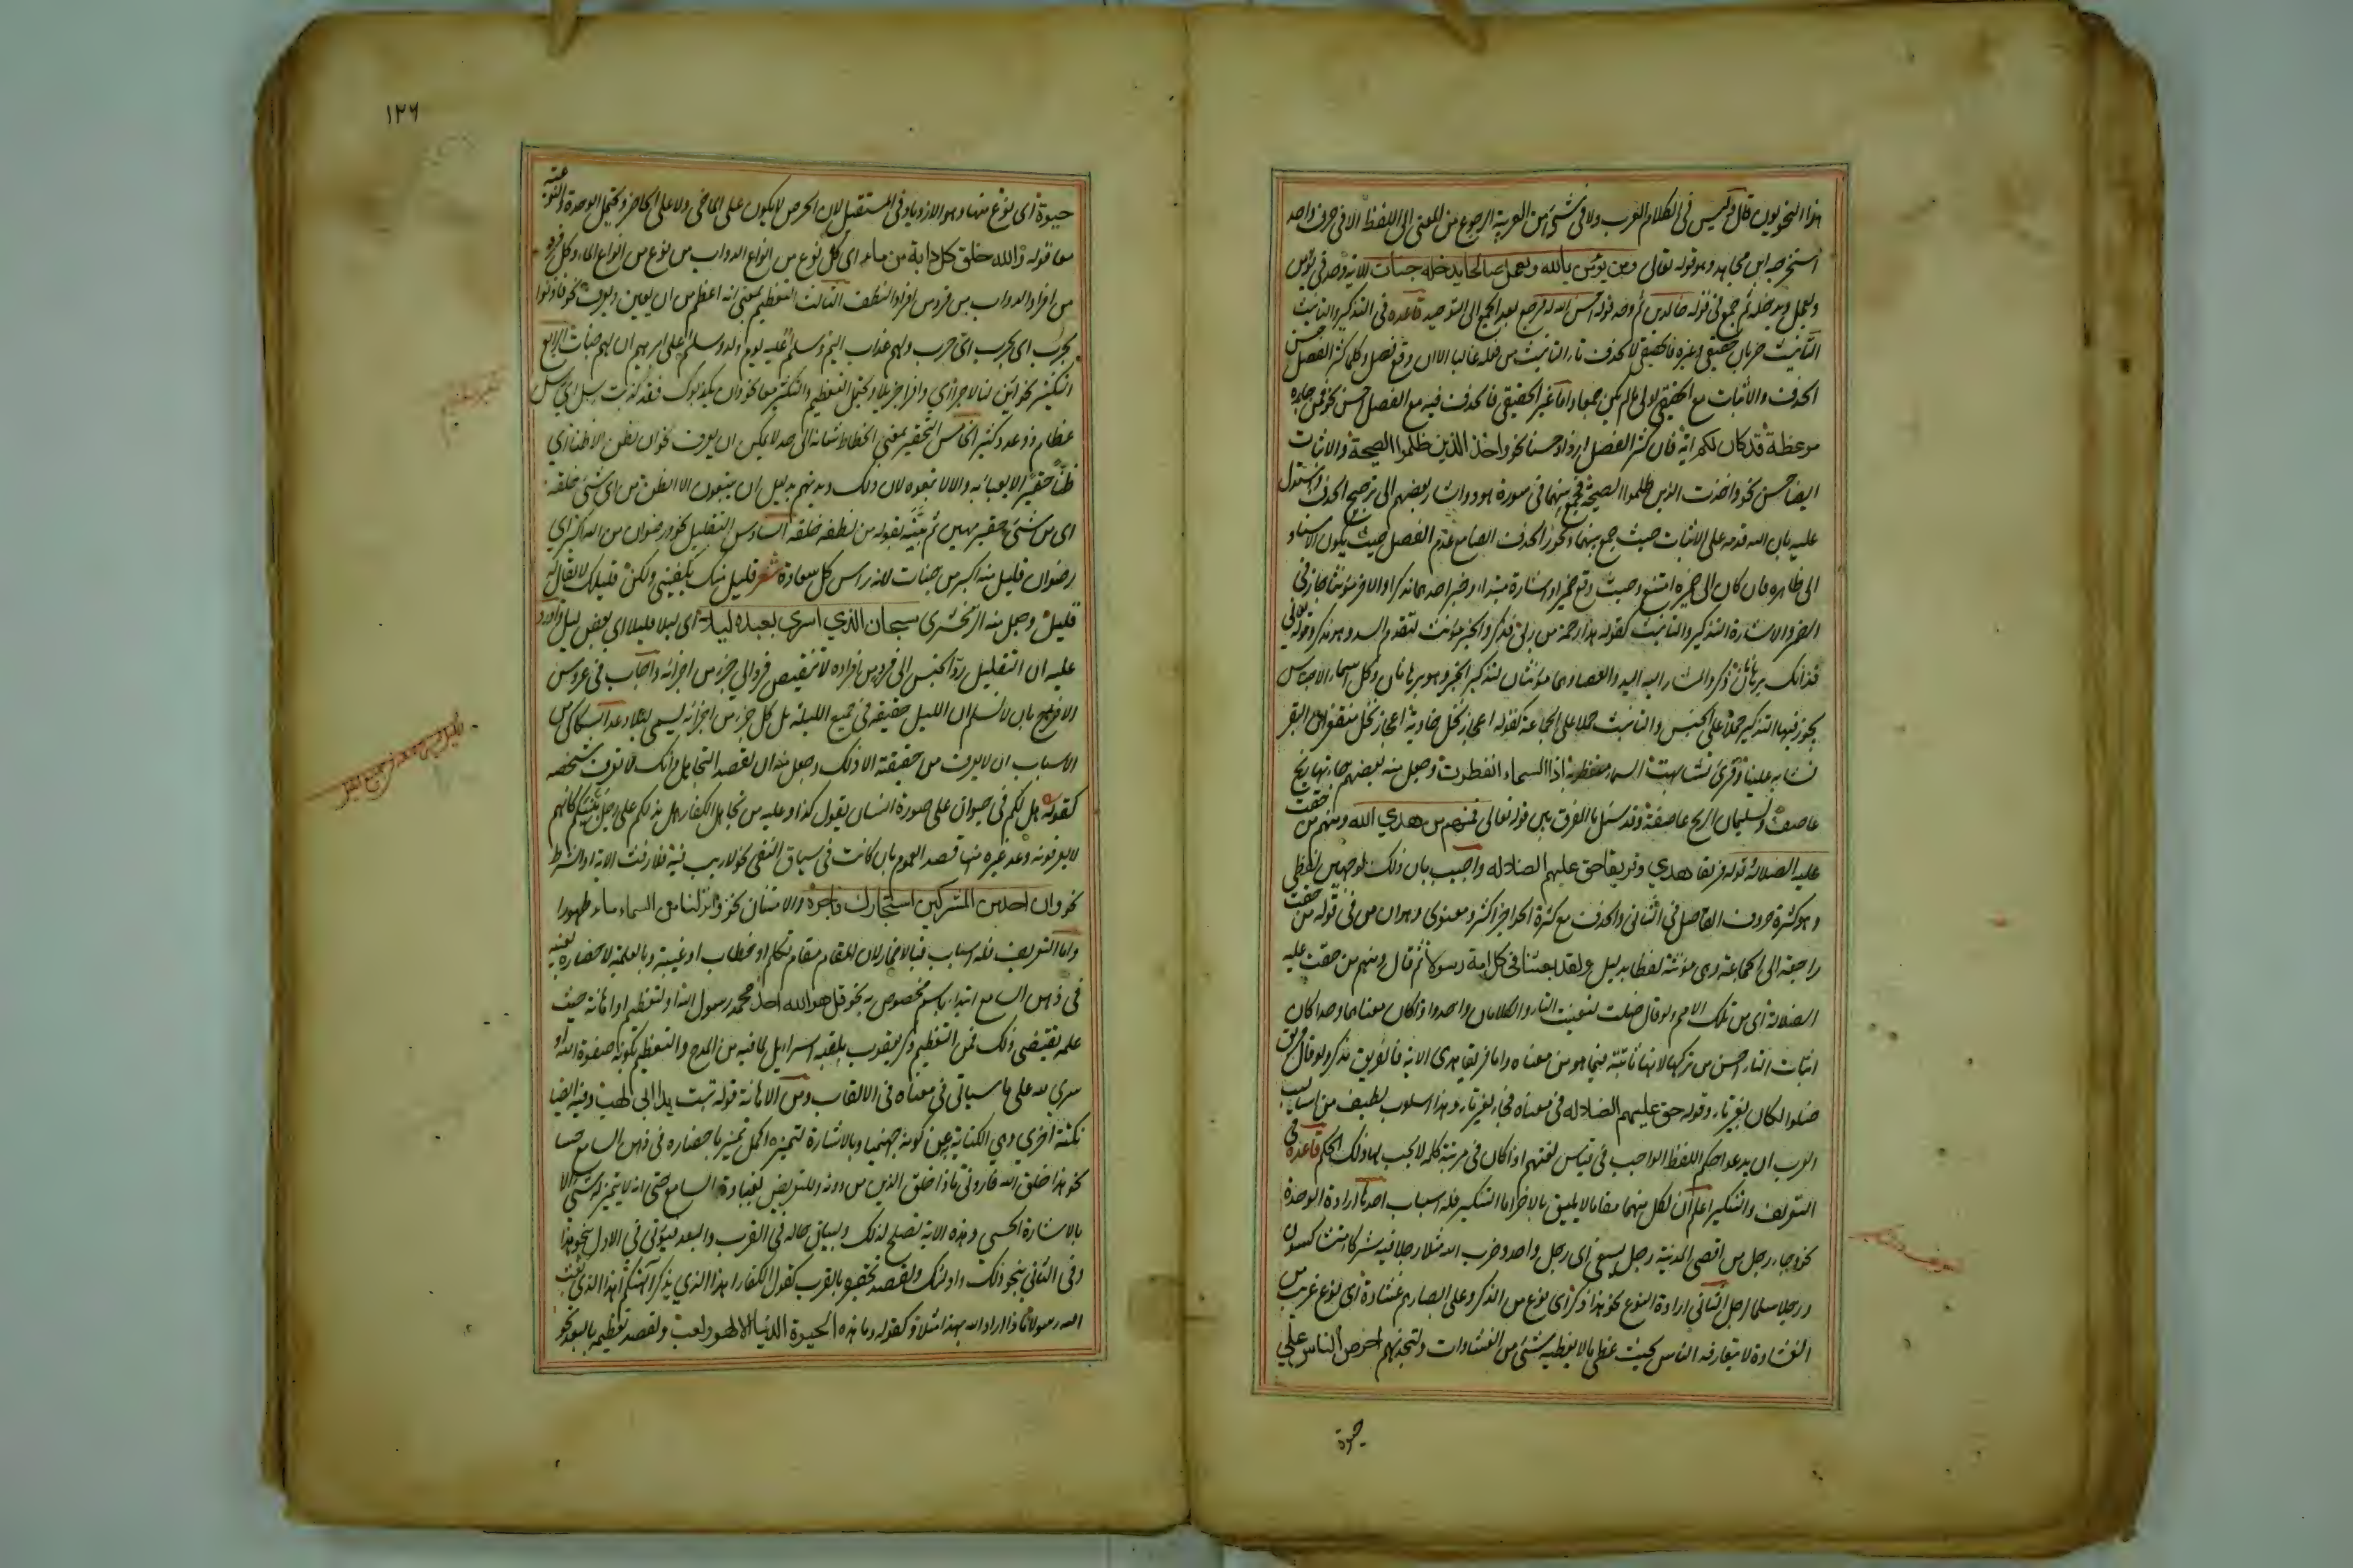 هذا النحويون قال وليس في الكلام العرب ولا في شئ من العربية الرجوع من المعنى الى اللفظ الا في حرف واحد
استخرجه ابن مجاهد وهو قوله تعالى ومن يؤمن بالله ويعمل صالحا يدخله جنات الاية وحد في يؤمن
ويعمل ويدخله ثم جمع في قوله خالدين ثم وحد قوله احسن الله له فرجع بعد الجمع الى التوحيد قاعدة في التذكير والتانيث
التانيث ضربان حقيقي وغيره فالحقيقي لا تحذف تاء التانيث من فعله غالبا الا ان وقع فصل وكلما كثر الفصل حسن
الحذف والاثبات مع الحقيقي اولى ما لم يكن جمعا واما غير الحقيقي فالحذف فيه مع الفصل حسن نحو فمن جاءه
موعظة قد كان لكم اية فان كثر الفصل ازداد حسنا نحو واخذ الذين ظلموا الصيحة والاثبات
ايضا حسن نحو واخذت الذين ظلموا الصيحة فجمع بينهما في سورة هود واشار بعضهم الى ترجيح الحذف واستدل
عليه بان الله قدمه على الاثبات حيث جمع بينهما ويجوز الحذف ايضا مع عدم الفصل حيث يكون الاسناد
الى ظاهره فان كان الى ضميره امتنع وحيث وقع ضمير او اشارة مبتداء وخبر احدهما مذكر والاخر مؤنث جاز في
الضمير والاشارة التذكير والتانيث كقوله هذا رحمة من ربي فذكر والخبر مؤنث لتقدم السد وهو مذكر وقوله تعالى
فذانك برهانان ذكر والمشار اليه اليد والعصا وهما مؤنثان لتذكير الخبر وهو برهانان وكل اسماء الاجناس
يجوز فيها التذكير حملا على الجنس والتانيث حملا على الجماعة كقوله اعجاز نخل خاوية اعجاز نخل منقعر ان البقر
تشابه علينا وقرئ تشابهت السماء منفطر به اذا السماء انفطرت وجعل منه بعضهم جاءتها ريح
عاصف ولسليمان الريح عاصفة وقد سئل ما الفرق بين قوله تعالى فمنهم من هدي الله ومنهم من حقت
عليه الضلالة قوله فريقا هدي وفريقا حق عليهم الضلاله واجيب بان ذلك لوجهين لفظي
وهو كثرة حروف الفاصل في الثاني والحذف مع كثرة الحواجز اكثر ومعنوي وهو ان من في قوله من حقت
راجعة الى الجماعة وهي مؤنثة لفظا بدليل ولقد بعثنا في كل امة رسولا ثم قال ومنهم من حقت عليه
الضلالة اي من تلك الامم ولو قال ضلت لتعينت التاء والكلامان واحد واذا كان معناهما واحدا كان
اثبات التاء احسن من تركها لانها ثابتة فيما هو من معناه واما فريقا هدى الاية فالفريق مذكر ولو قال فريق
ضلوا لكان بغير تاء وقوله حق عليهم الضلاله في معناه فجاء بغير تاء وهذا اسلوب لطيف من اساليب
العرب ان يدعوا حكم اللفظ الواجب في قياس لغتهم اذا كان في مرتبة كلمة لا يجب لها ذلك الحكم قاعدة في
التعريف والتنكير اعلم ان لكل منهما مقاما لا يليق بالاخر اما التنكير فله اسباب احدها ارادة الوحدة
نحو وجاء رجل من اقصى المدينة رجل يسعى اي رجل واحد وضرب الله مثلا رجلا فيه شركاء متشاكسون
ورجلا سلما لرجل الثاني ارادة النوع نحو هذا ذكر اي نوع من الذكر وعلى ابصارهم غشاوة اي نوع غريب من
الغشاوة لا يتعارفه الناس بحيث غطى ما لا يغطيه شئ من الغشاوات ولتجدنهم احرص الناس على
حيوة
١٢٦
حيوة اي نوع منها وهو الازدياد في المستقبل لان الحرص لا يكون على الماضي ولا على الحاضر ويحتمل الوحدة والنوعية
معا قوله والله خلق كل دابة من ماء اي كل نوع من انواع الدواب من نوع من انواع الماء وكل فرد
من افراد الدواب من فرد من افراد النطف الثالث التعظيم بمعنى انه اعظم من ان يعين ويعرف نحو فاذنوا
بحرب اي بحرب اي حرب ولهم عذاب اليم وسلم عليه يوم ولد وسلم على ابرهيم ان لهم جنات الرابع
التكثير نحو اين لنا لاجرا اي وافرا جزيلا ويحتمل التعظيم والتكثير معا نحو وان يكذبوك فقد كذبت رسل اي رسل
عظام ذو عدد كثير الخامس التحقير بمعنى انحطاط شانه الى حد لا يمكن ان يعرف نحو ان نظن الا ظنا اي
ظنا حقيرا لا يعبا به والا لاتبعوه لان ذلك ديدنهم بدليل ان يتبعون الا الظن من اي شئ خلقه
اي من شئ حقير مهين ثم بينه بقوله من نطفة خلقه السادس التقليل نحو ورضوان من الله اكبر اي
رضوان قليل منه اكبر من جنات لانه راس كل سعادة شعر قليل منك يكفيني ولكن قليلك لا يقال له
قليل وجعل منه الزمخشري سبحان الذي اسرى بعبده ليلا اي ليلا قليلا اي بعض ليل واورد
عليه ان التقليل رد الجنس الى فرد من افراده لا تنقيص فرد الى جزء من اجزائه واجاب في عروس
الافراح بان لا نسلم ان الليل حقيقة في جميع الليلة بل كل جزء من اجزائه يسمى ليلا وعد السكاكي من
الاسباب ان لا يعرف من حقيقته الا ذلك وجعل منه ان تقصد التجاهل وانك لا تعرف شخصه
كقوله هل لكم في حيوان على صورة انسان يقول كذا وعليه من تجاهل الكفار هل ندلكم على رجل ينبئكم كانهم
لا يعرفونه وعد غيره منها قصد العموم بان كانت في سياق النفي نحو لا ريب فيه فلا رفث الاية او الشرط
نحو وان احد من المشركين استجارك فاجره والامتنان نحو وانزلنا من السماء ماء طهورا
واما التعريف فله اسباب فبالاضمار لان المقام مقام تكلم او خطاب او غيبة وبالعلمية لاحضاره بعينه
في ذهن السامع ابتداء باسم مخصوص به نحو قل هو الله احد محمد رسول الله او لتعظيم او اهانة حيث
علمه تقتضي ذلك فمن التعظيم ذكر يعقوب بلقبه اسرائيل لما فيه من المدح والتعظيم بكونه صفوة الله او
سري لله على ما سياتي في معناه في الالقاب ومن الاهانة قوله تبت يدا ابي لهب وفيه ايضا
نكتة اخرى وهي الكناية عن كونه جهنميا وبالاشارة لتميزه اكمل تميز باحضاره في ذهن السامع حسا
نحو هذا خلق الله فاروني ماذا خلق الذين من دونه وللتعريض بغباوة السامع حتى انه لا يتميز له شئ الا
بالاشارة الحسي وهذه الاية تصلح لذلك ولبيان حاله في القرب والبعد فيؤتى في الاول بنحو هذا
وفي الثاني بنحو ذلك واولئك ولقصد تحقيره بالقرب كقول الكفار اهذا الذي يذكر الهتكم اهذا الذي بعث
الله رسولا ماذا اراد الله بهذا مثلا وكقوله وما هذه الحيوة الدنيا الا لهو ولعب ولقصد تعظيمه بالبعد نحو